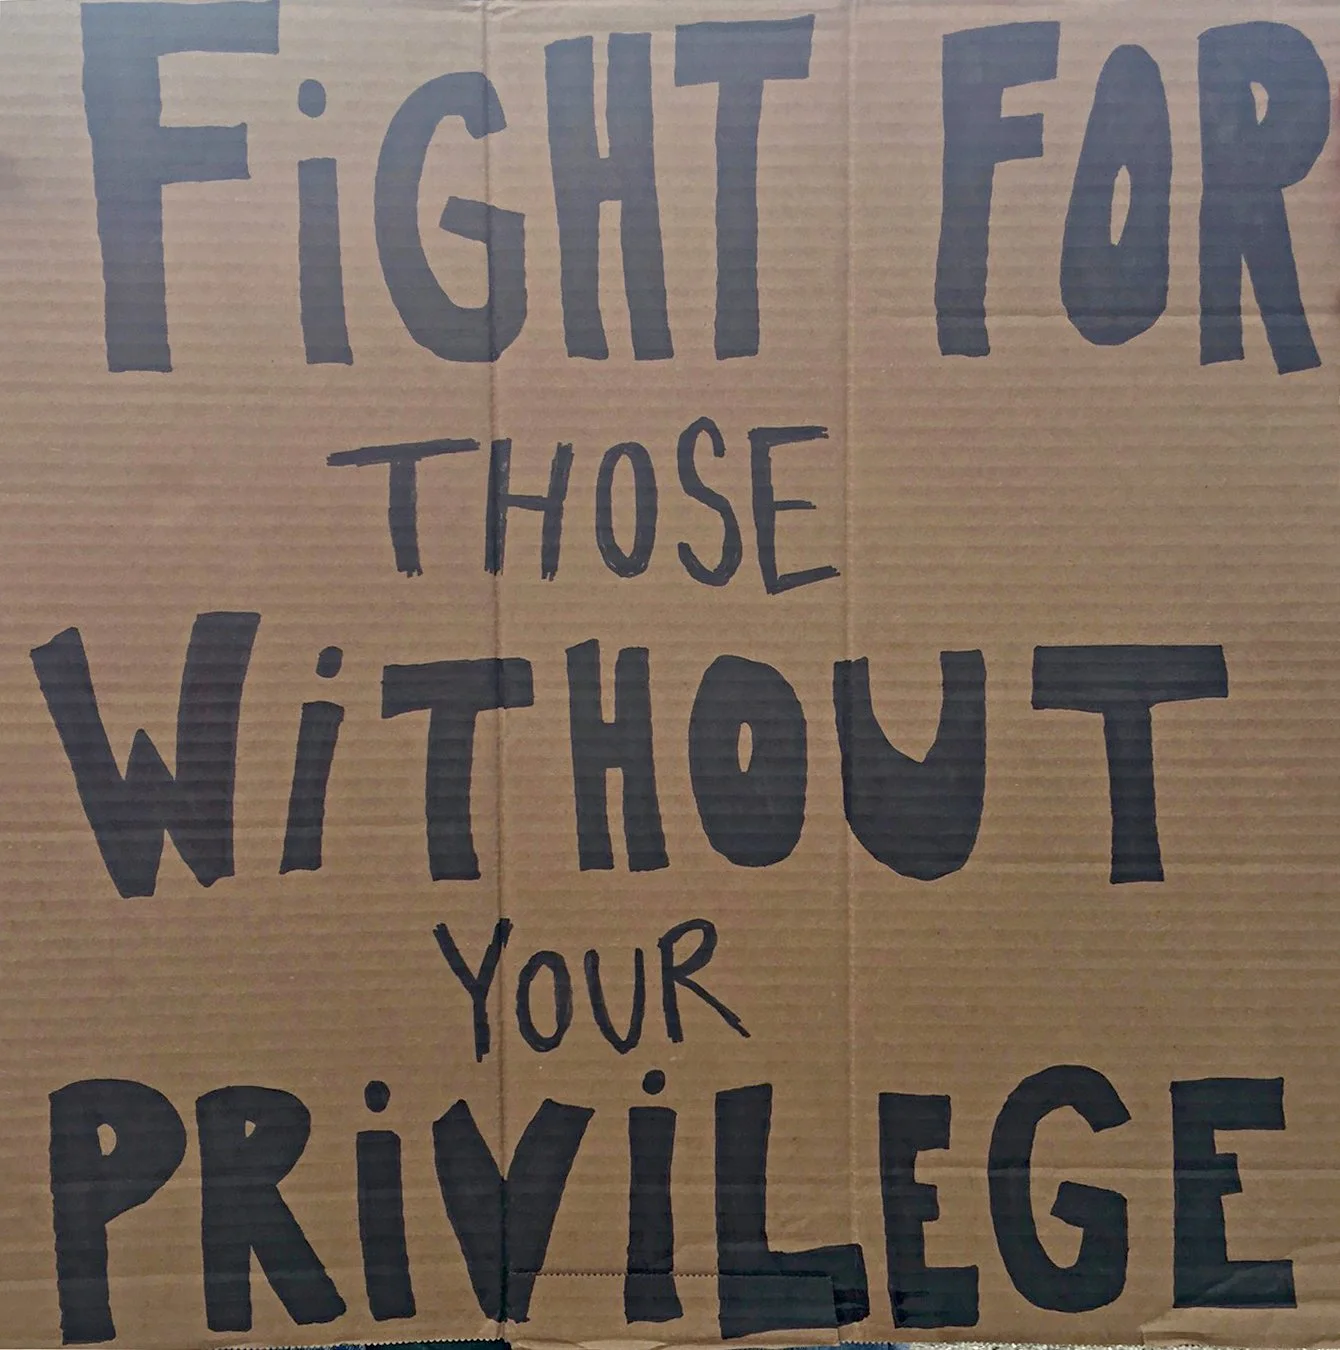 FiGHT FOR
THOSE
WiTHOUT
YOUR
PRiViLEGE